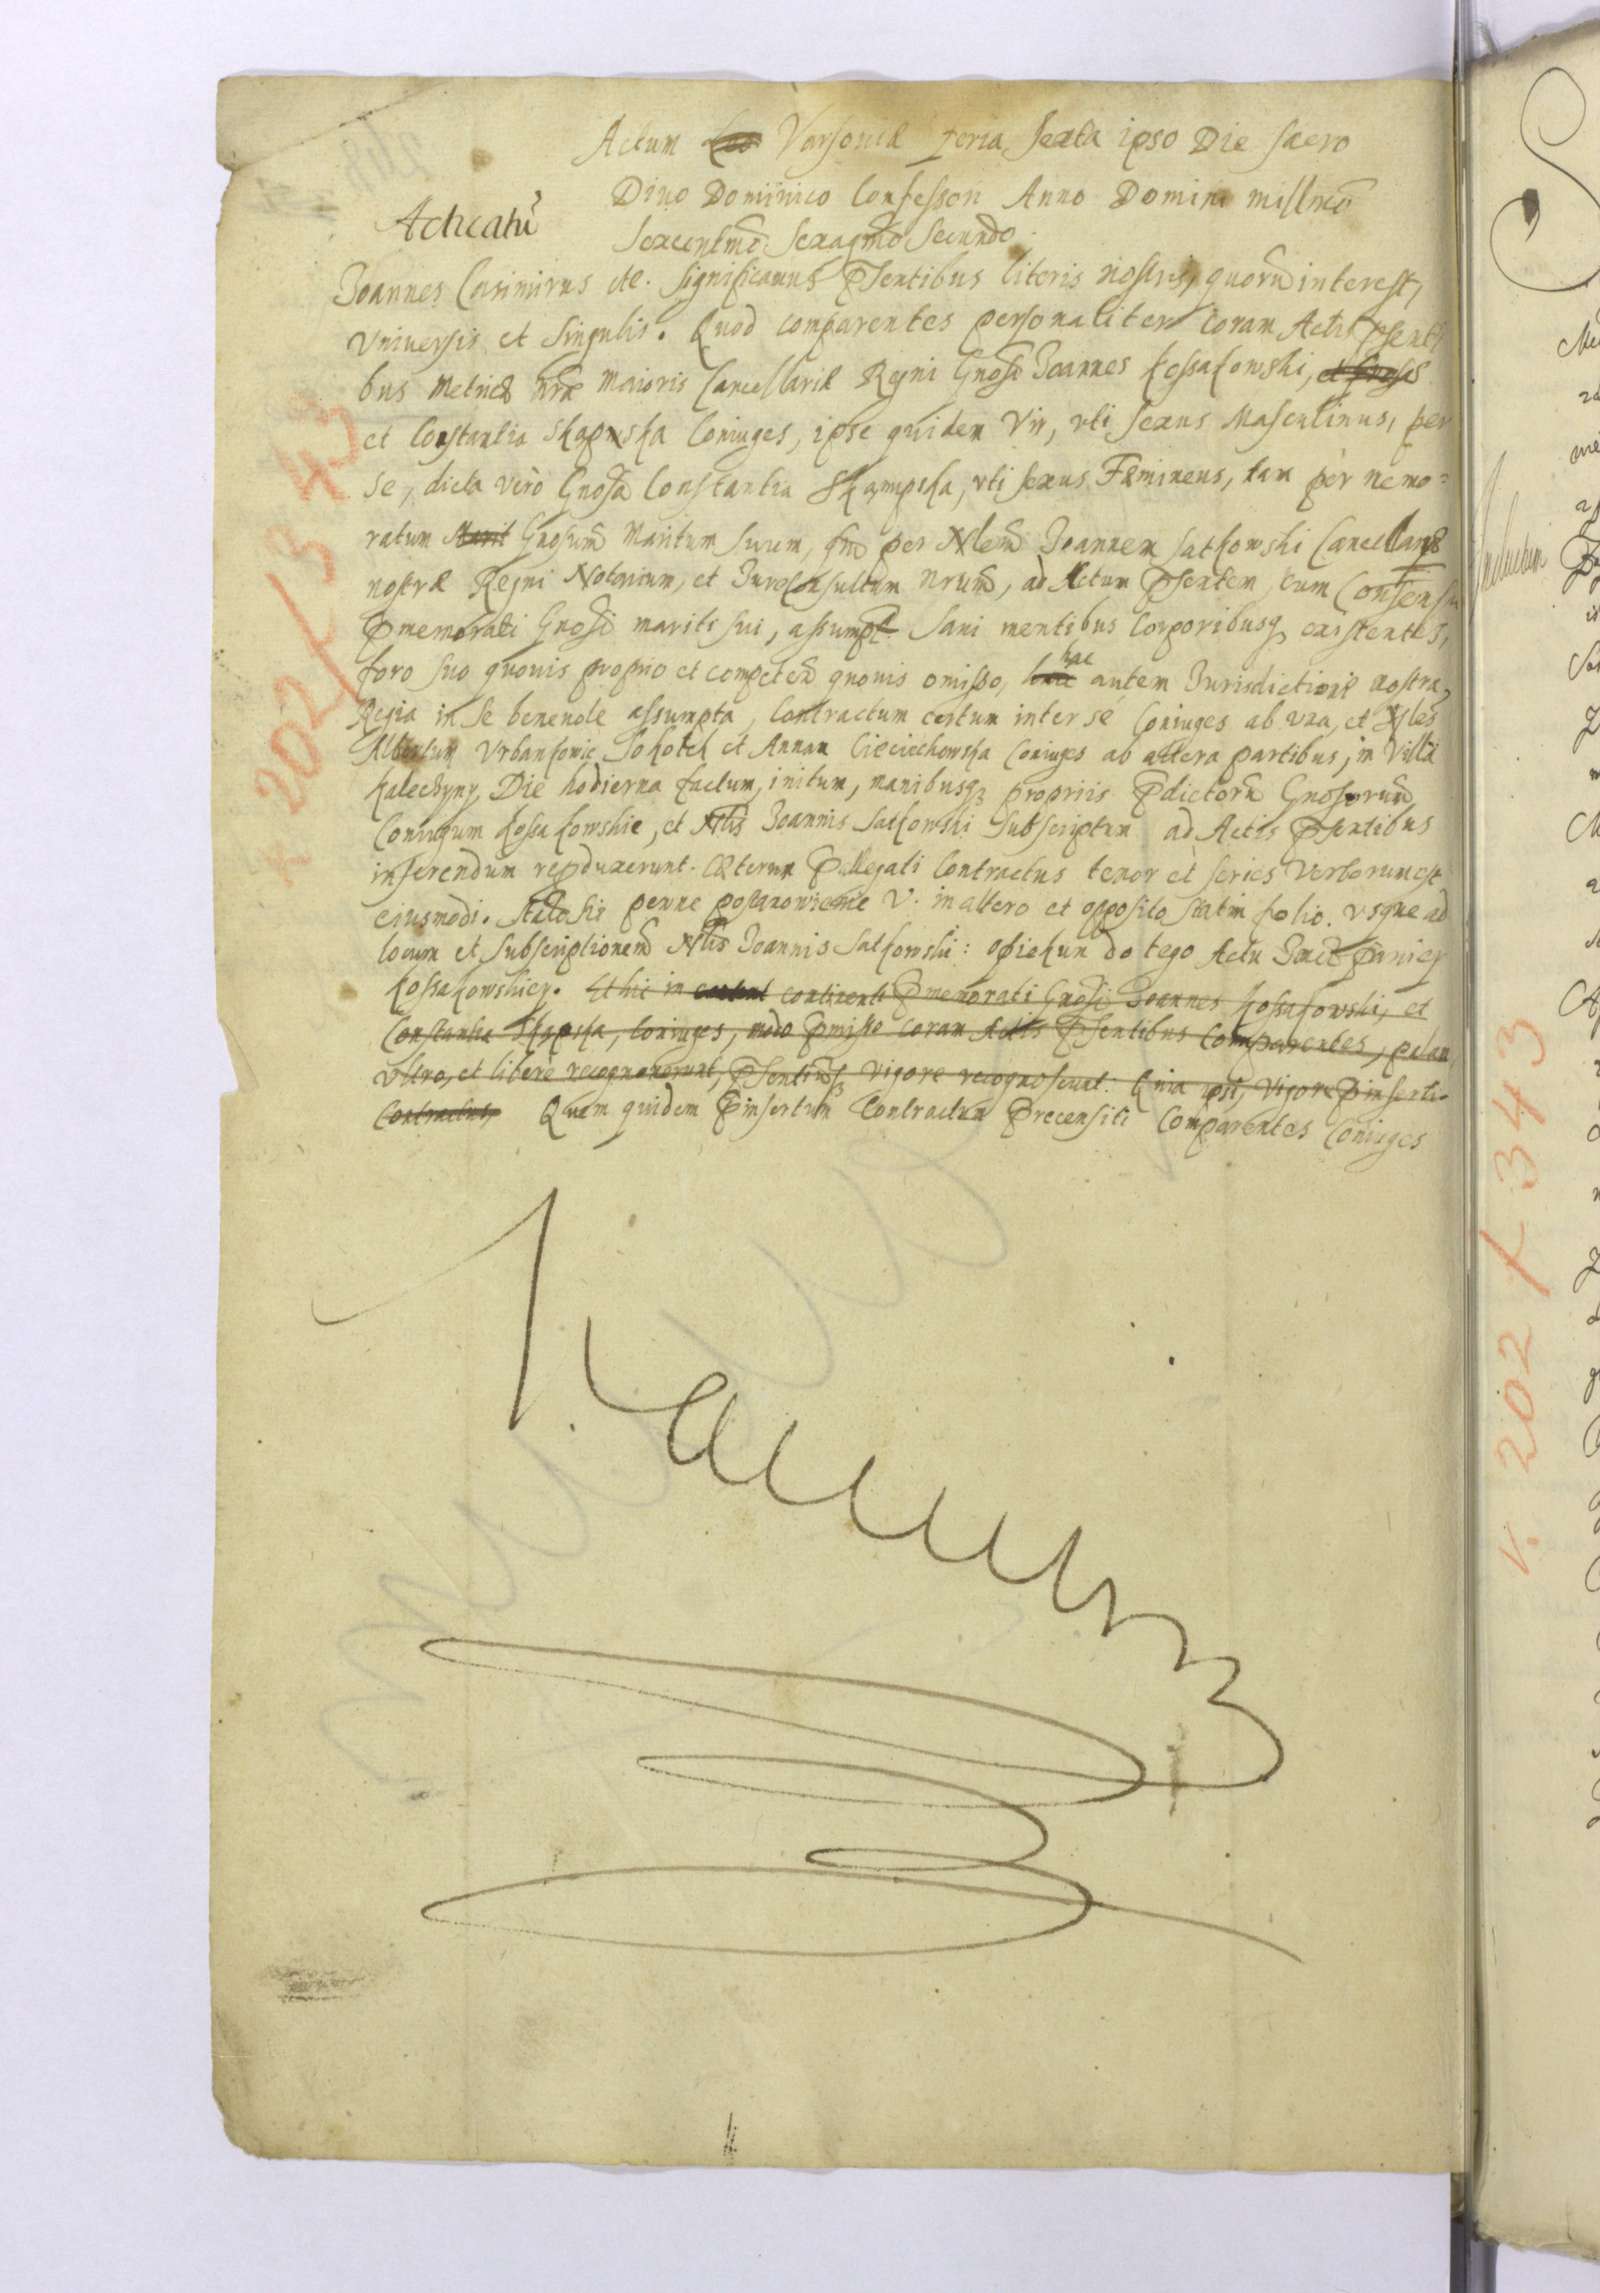 Actum Varsoviæ feria Sexta ipso Die sacro
Divo Dominico Confessori Anno Domini millmō
Sexcentmō Sexagmō Secundo.
Acticatū
Joannes Casimirus etc. Significamus Psentibus literis nostris, quorū interest,
Vniversis et Singulis. Quod comparentes personaliter coram Actis Psenti
bus Metrices nræ Maioris Cancellariæ Regni Gnosi Joannes Kossakowski, et Gnosa
et Constantia Skąpska Coniuges, ipse quidem Vir, vti sexus Masculinus, per
se, dicta verò Gnosa Constantia Skąmpska, vti sexus Fæmineus, tam per memo-
ratum Marit Gnosum Maritum suum, qm per Nlem Joannem Satkowski Cancellariæ
nostræ Regni Notarium, et Jureconsultum nrum, ad Actum Psentem, cum Consensu
Pmemorati Gnosi mariti sui, assumpt Sani mentibus Corporibusq existentes,
foro suo quovis proprio et competen quovis omisso, hac autem Jurisdictione nostra
Regia in se benevole assumpta, Contractum certum inter se Coniuges ab vna, et Nles
Albertum Vrbankowic Sokoteł et Annam Cieciechowska Coniuges ab altera partibus, in Villa
Kaleczyny, Die hodierna factum, initum, manibusq propriis Pdictorū Gnosorum
Coniugum Kossakowskie, et Nlis Joannis Satkowski Subscriptum ad Actis Psentibus
inserendum repduxerunt. Cæterum Pallegati Contractus tenor et series Verborum est
eiusmodi. Stało się pewne postanowienie V. in altero et opposito statim folio. vsque ad
locum et subscriptionem Nlis Joannis Satkowski: opiekun do tego Actu Jmci Paniey
Kossakowskiey. Et hic in continenti Pmemorati Gnosi Joannes Kossakowski, et
Constantia Skąpska, Coniuges, modo Pmisso coram Actis Psentibus Comparentes, palam
vltro, et libere recognoverunt, Psentiūq vigore recognoscunt. Quia ipsi, vigore Pinserti
Contractus, Quem quidem Pinsertum Contractum Precensiti Comparentes Coniuges
V. 202 f 343
V. 202 f 343
Inductum